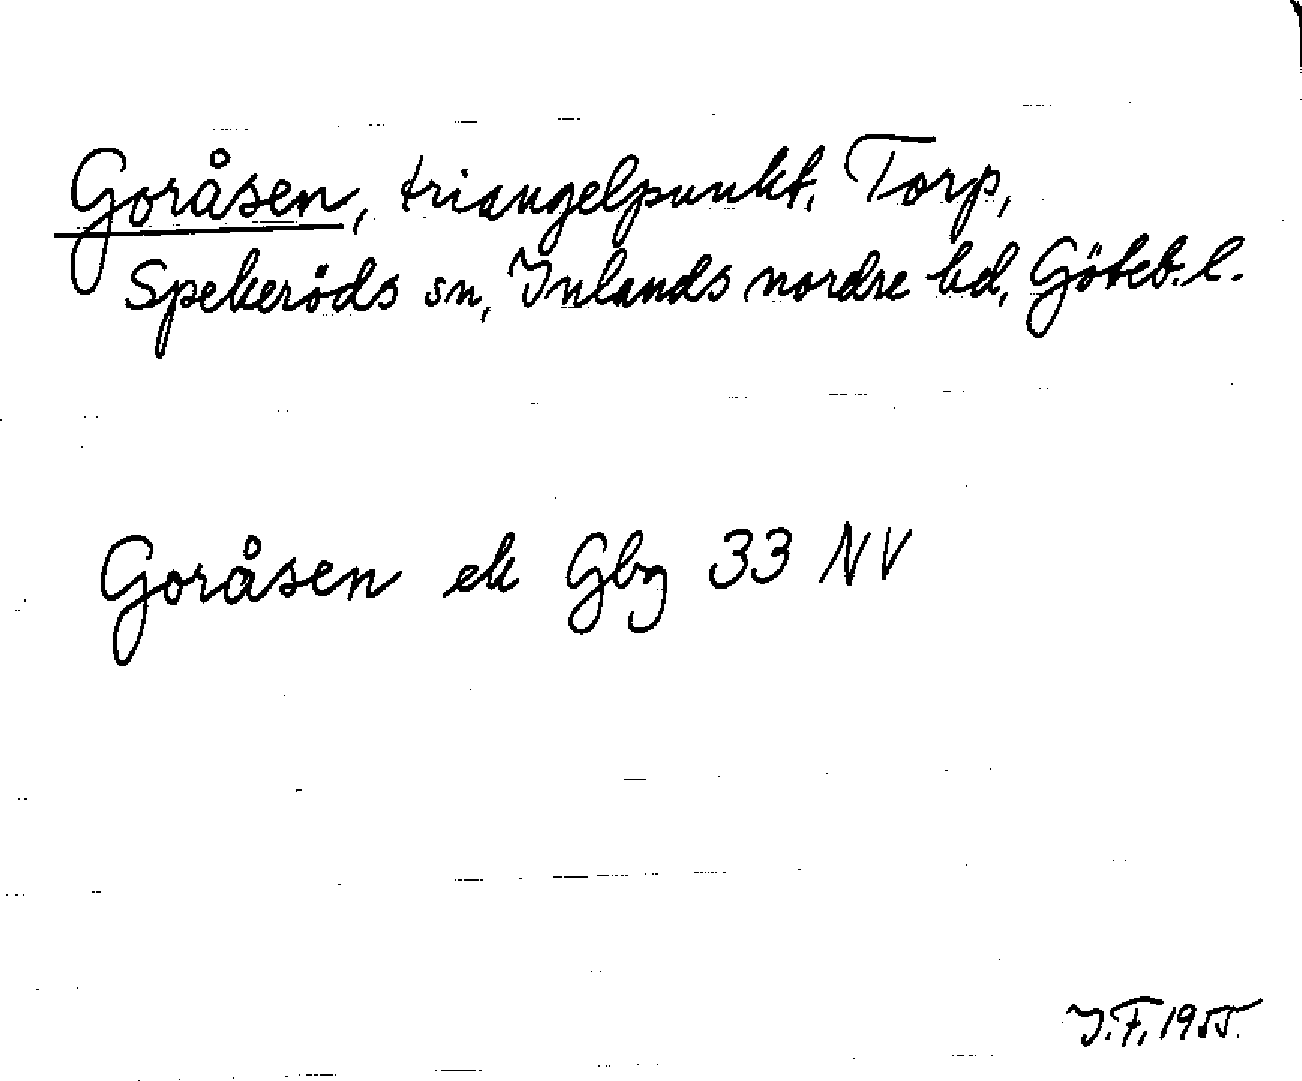 Goråsen, triangelpunkt, Torp,
Spekeröds sn, Inlands nordre hd, Göteb. l.
Goråsen ek Gbg 33 NV
I.F. 1955.